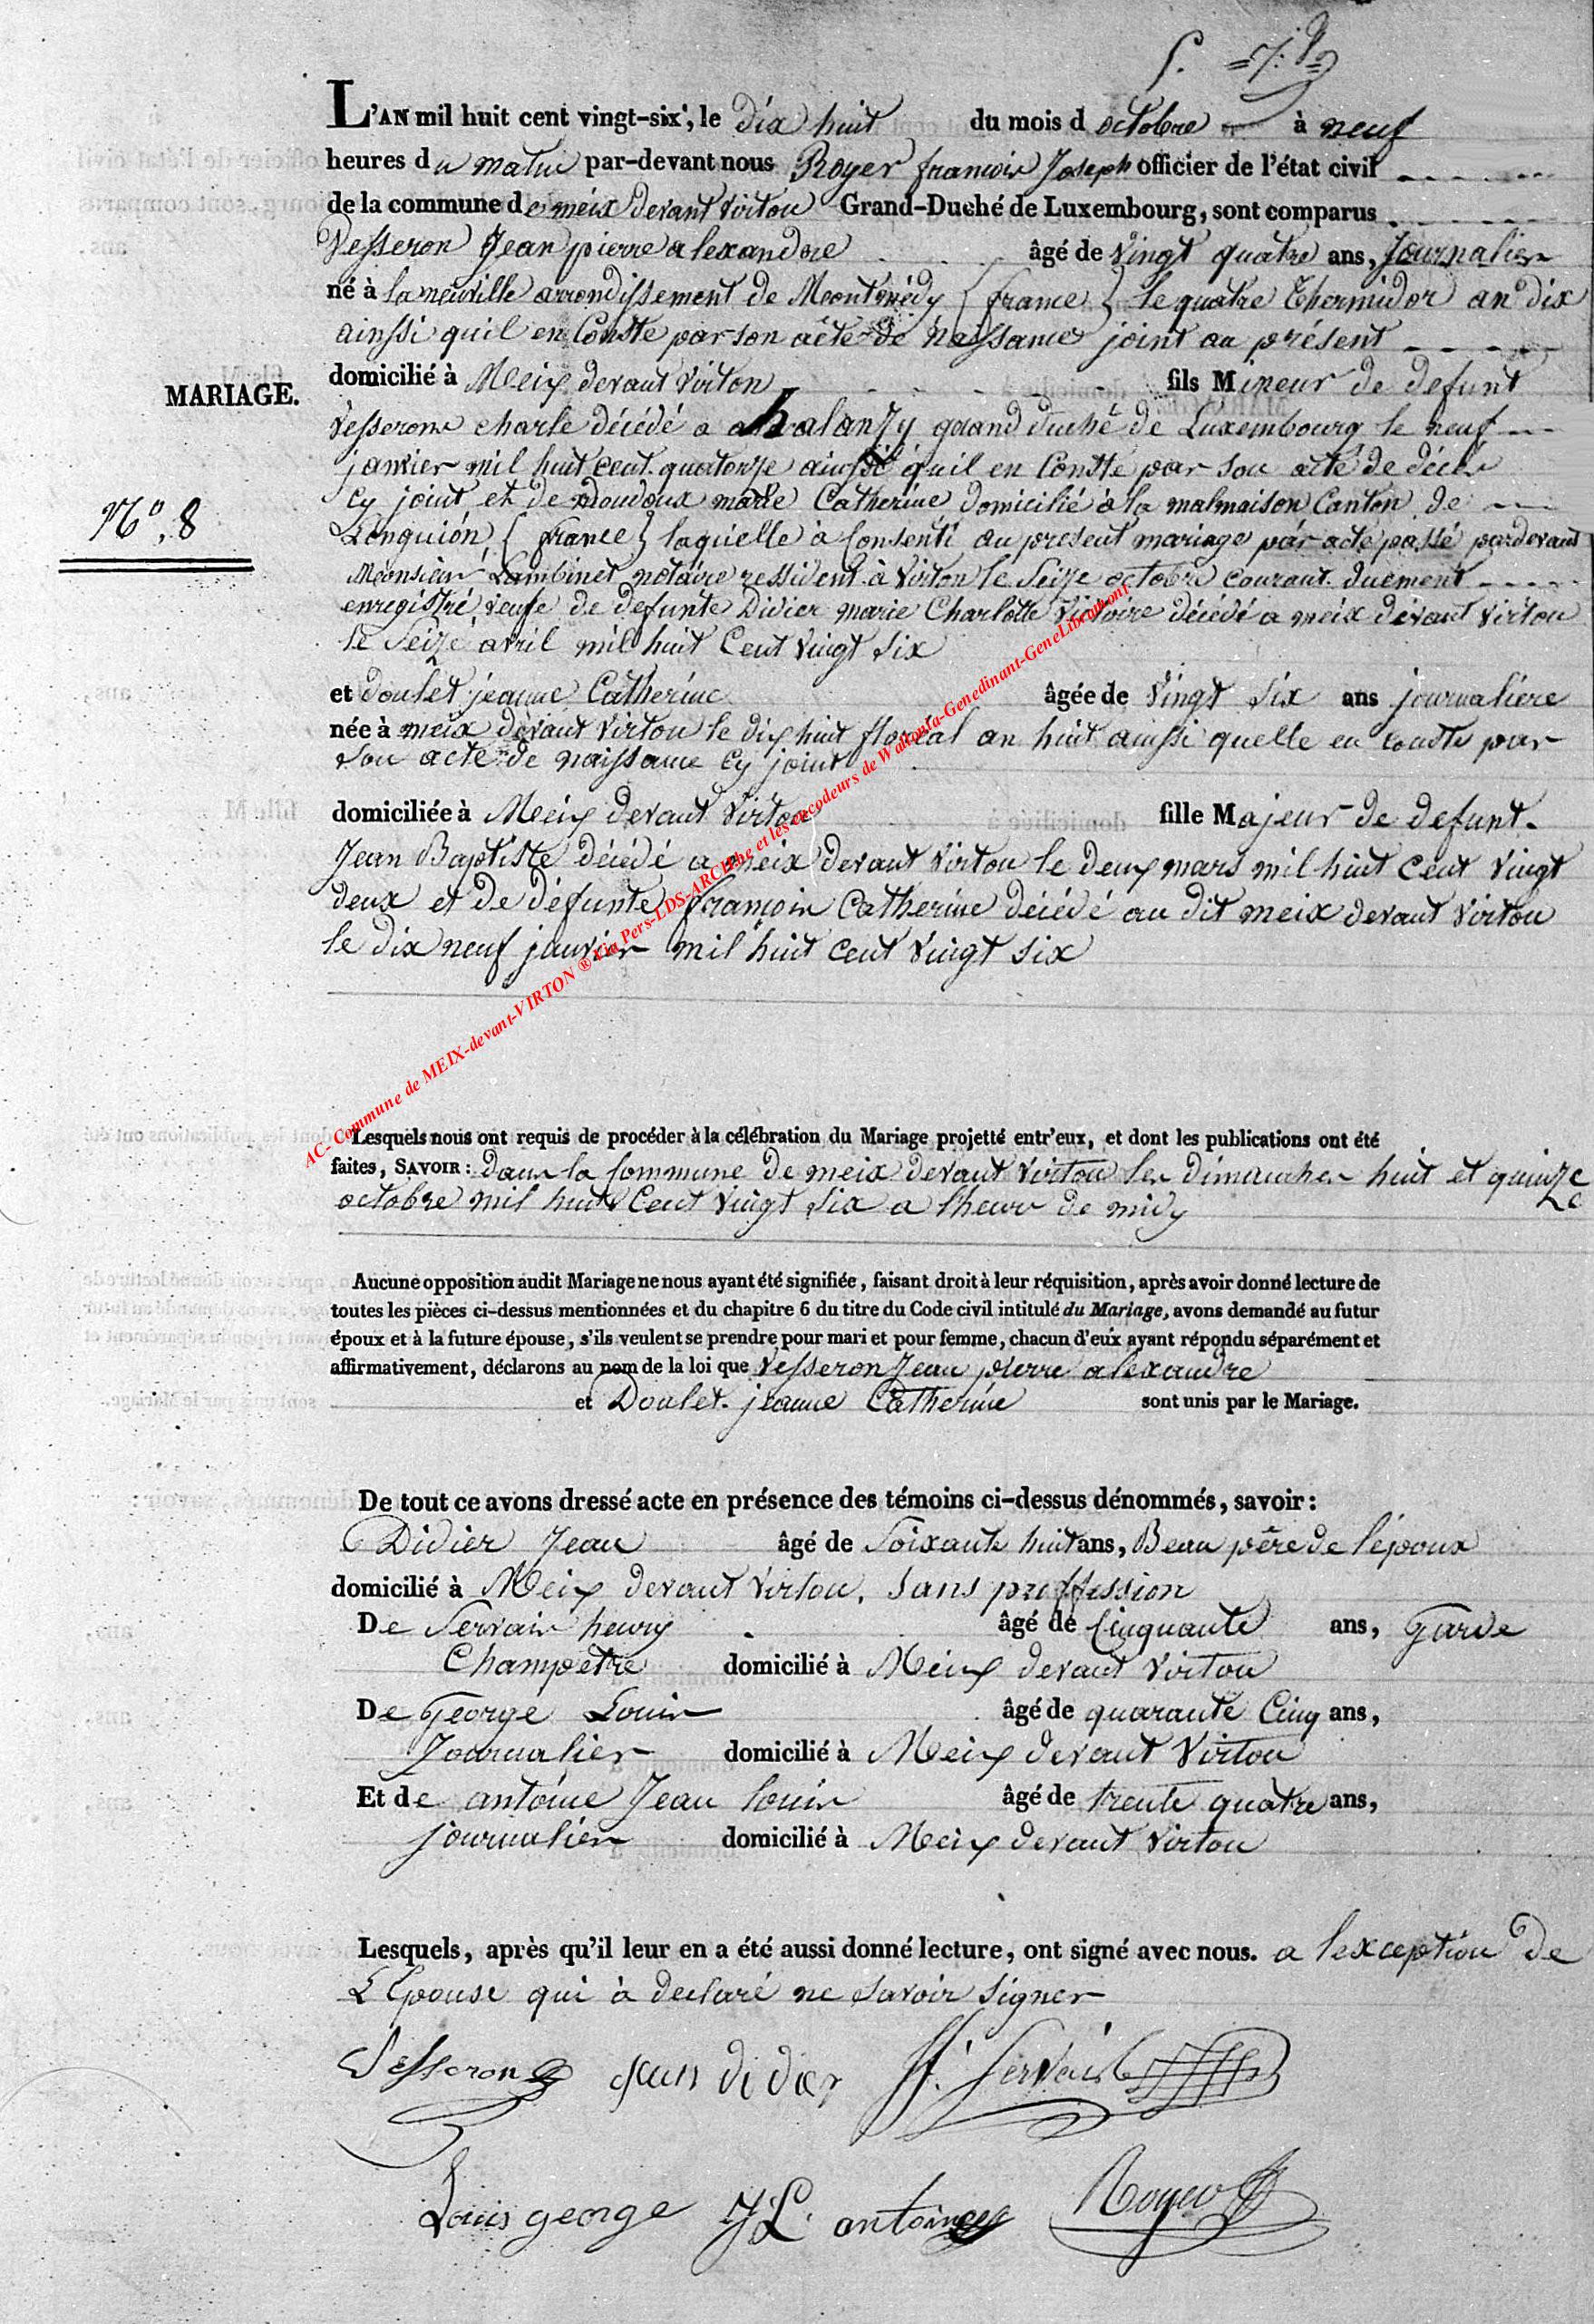 L'AN mil huit cent vingt-six, le dix huit du mois d octobre à neuf
heures du matin par-devant nous Royer francois Joseph officier de l'état civil
de la commune de meix devant virton Grand-Duché de Luxembourg, sont comparus
Vesseron Jean pierre alexandre âgé de vingt quatre ans, Journalier
né à laneuville arrondissement de Montmédy { france } le quatre Thermidor an dix
ainssi quil en Conste par son acte de naissance joint au présent
domicilié à Meix devant virton fils Mineur de defunt
MARIAGE.
Vesseron charle décédé a halanzy grand duché de Luxembourg le neuf
janvier mil huit cent quatorze ainssi quil en Conste par son acte de décès
N° 8
cy joint et de moudoux marie Catherine domicilié à la malmaison Canton de
Longuion { france } laquelle à Consenti au present mariage par acte passé pardevant
Monsieur Lambinet notaire ressident à virton le Seize octobre courant duement
enregistré veufe de defunte Didier marie Charlotte Victoire décédé a meix devant virton
le seize avril mil huit Cent vingt six
et doulet jeanne Catherine âgée de vingt six ans journaliere
née à meix devant virton le dix huit floréal an huit ainssi quelle en conste par
son acte de naissance cy joint
domiciliée à Meix devant virton fille Majeur de defunt.
Jean Baptiste décédé a meix devant virton le deux mars mil huit cent vingt
deux et de défunte françois Catherine décédé au dit meix devant virton
le dix neuf janvier mil huit cent vingt six
AC- Commune de MEIX-devant-VIRTON ® via Pers-LDS-ARCHbe et les encodeurs de Wallonia-Genedinant-GeneLibramont
Lesquels nous ont requis de procéder à la célébration du Mariage projetté entr'eux, et dont les publications ont été
faites, SAVOIR : dans la Commune de meix devant virton les dimanches huit et quinze
octobre mil huit Cent vingt six a lheure de midy
Aucune opposition audit Mariage ne nous ayant été signifiée, faisant droit à leur réquisition, après avoir donné lecture de
toutes les pièces ci-dessus mentionnées et du chapitre 6 du titre du Code civil intitulé du Mariage, avons demandé au futur
époux et à la future épouse, s'ils veulent se prendre pour mari et pour femme, chacun d'eux ayant répondu séparément et
affirmativement, déclarons au nom de la loi que Vesseron Jean pierre alexandre
et Doulet jeanne Catherine sont unis par le Mariage.
De tout ce avons dressé acte en présence des témoins ci-dessus dénommés, savoir :
Didier Jean âgé de Soixante huit ans, Beau père de lépoux
domicilié à Meix devant virton. sans proffession
De Servais henry âgé de Cinquante ans, Garde
Champetre domicilié à Meix devant virton
De George Louis âgé de quarante Cinq ans,
Journalier domicilié à Meix devant virton
Et de antoine Jean louis âgé de trente quatre ans,
journalier domicilié à Meix devant virton
Lesquels, après qu'il leur en a été aussi donné lecture, ont signé avec nous. a lexception de
L'Epouse qui à declaré ne savoir signer
Vesseron jean didier H. Servais
Louis george JL antoine Royer